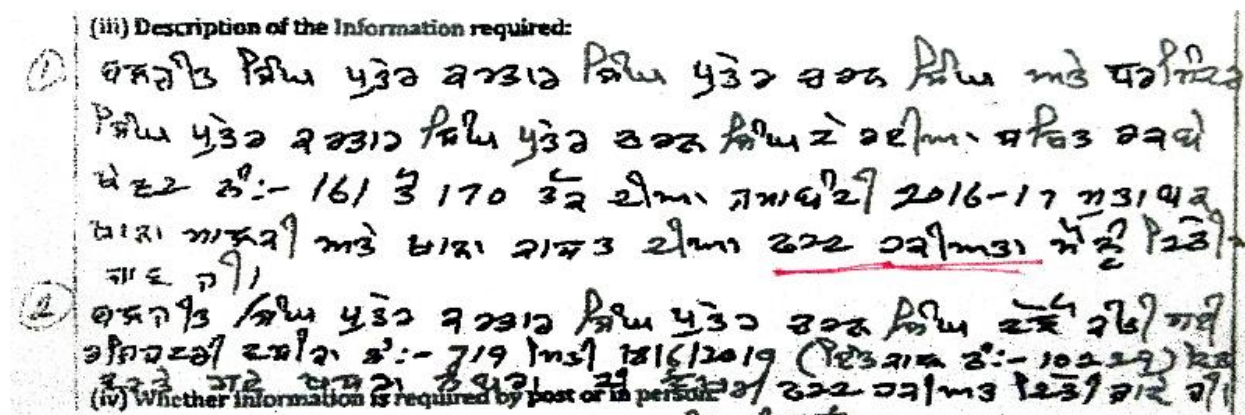 (iii) Description of the Information required:
① ਬਲਜੀਤ ਸਿੰਘ ਪੁੱਤਰ ਕਰਤਾਰ ਸਿੰਘ ਪੁੱਤਰ ਚਰਨ ਸਿੰਘ ਅਤੇ
ਸਿੰਘ ਪੁੱਤਰ ਕਰਤਾਰ ਸਿੰਘ ਪੁੱਤਰ ਚਰਨ ਸਿੰਘ ਦੇ ਸਥਿਤ ਰਕਬੇ
ਖੇਵਟ ਨੰ:- 161 ਤੋਂ 170 ਤੱਕ ਦੀਆਂ ਜਮਾਬੰਦੀ 2016-17 ਮੁਤਾਬਕ
ਖਾਨਾ ਮਾਲਕੀ ਅਤੇ ਖਾਨਾ ਕਾਸ਼ਤ ਦੀਆਂ ਫਰਦ ਹਕੀਅਤਾਂ ਮੈਨੂੰ ਦਿੱਤੀ
ਜਾਣ ਜੀ।
② ਬਲਜੀਤ ਸਿੰਘ ਪੁੱਤਰ ਕਰਤਾਰ ਸਿੰਘ ਪੁੱਤਰ ਚਰਨ ਸਿੰਘ ਵੱਲੋਂ ਗਈ
ਰਜਿਸਟਰੀ ਵਸੀਕਾ ਨੰ:- 719 ਮਿਤੀ 18/6/2019 (ਇੰਤਕਾਲ ਨੰ:- 10229) ਵਿੱਚ
ਖਸਰਾ ਦੀ ਫਰਦ ਹਕੀਅਤ ਦਿੱਤੀ ਜਾਵੇ ਜੀ।
(iv) Whether information is required by post or in person: